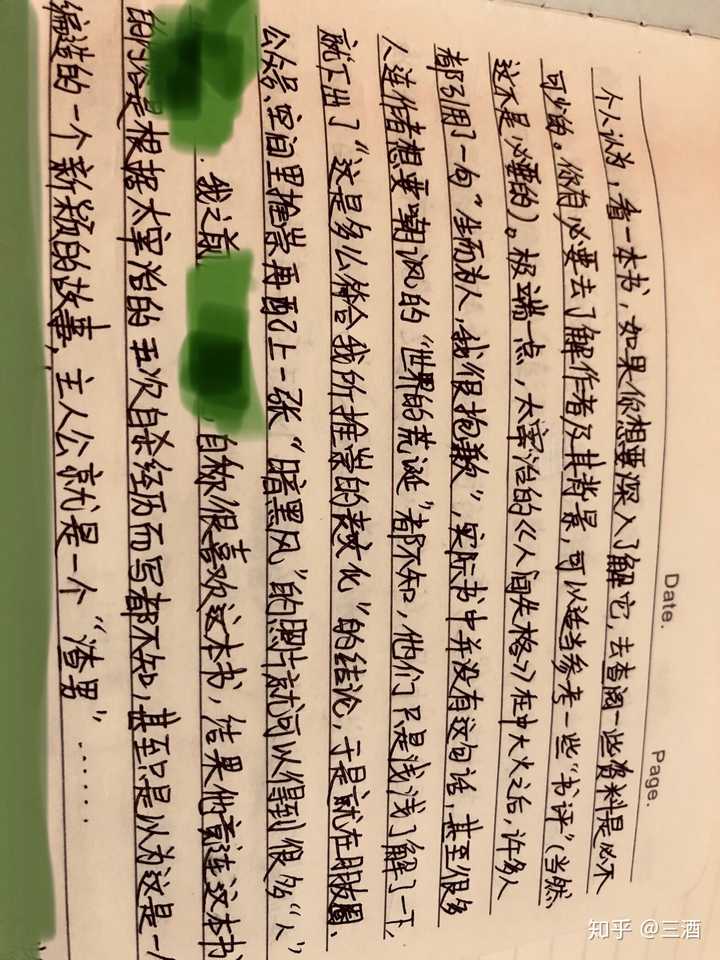 Date.
Page.
个人认为，看一本书，如果你想要深入了解它，去查阅一些资料是必不
可少的。你有必要去了解作者及其背景，可以适当参考一些“书评”（当然
这不是必要的）。极端一点，太宰治的《人间失格》在中大火之后，许多人
都引用了一句“生而为人，我很抱歉”，实际书中并没有这句话，甚至很多
人连作者想要嘲讽的“世界的荒诞”都不知，他们只是浅浅了解了一下，
就下出了“这是多么符合我所推崇的丧文化”的结论，于是就在朋友圈、
公众号、空间里推崇再配上一张“暗黑风”的照片就可以得到很多“人”
我之前
，自称很喜欢这本书，结果他竟连这本书
是根据太宰治的五次自杀经历而写都不知，甚至只是以为这是一
编造的一个新颖的故事，主人公就是一个“渣男”……
知乎 @三酒